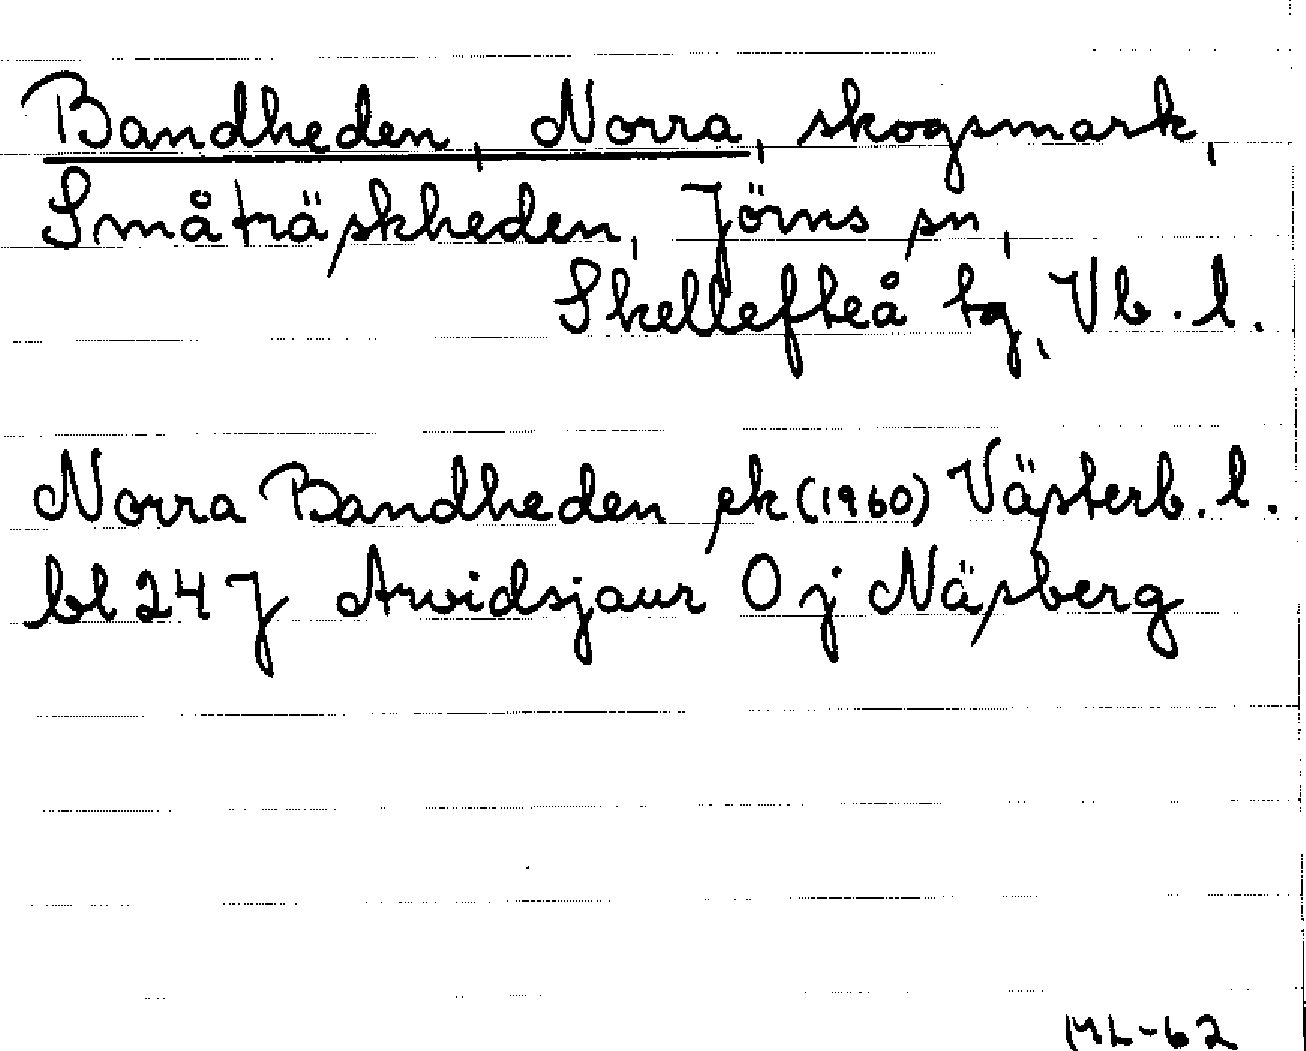 Bandheden, Norra, skogsmark,
Småträskheden, Jörns sn,
Skellefteå tg, Vb. l.
Norra Bandheden ek (1960) Västerb. l.
bl 24 J Arvidsjaur O j Näsberg
ML-62